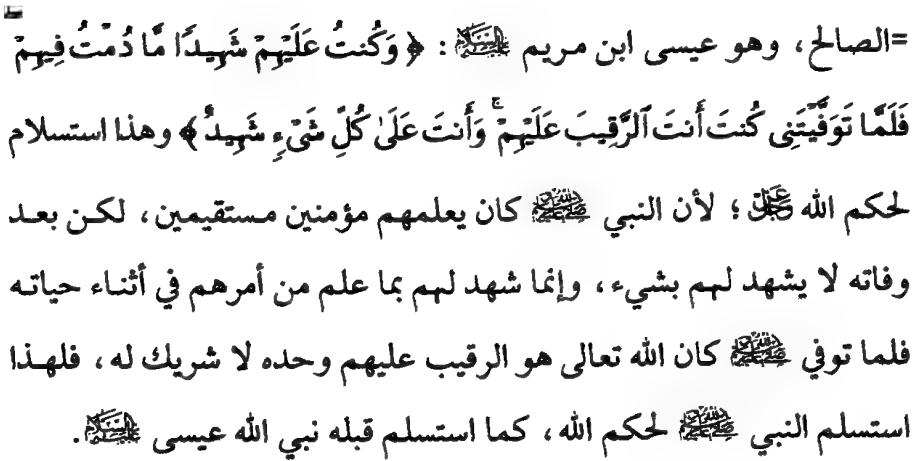 =الصالح، وهو عيسى ابن مريم عليه السلام: ﴿ وَكُنتُ عَلَيْهِمْ شَهِيدًا مَّا دُمْتُ فِيهِمْ
فَلَمَّا تَوَفَّيْتَنِى كُنتَ أَنتَ ٱلرَّقِيبَ عَلَيْهِمْ ۚ وَأَنتَ عَلَىٰ كُلِّ شَىْءٍ شَهِيدٌ ﴾ وهذا استسلام
لحكم الله عز وجل؛ لأن النبي ﷺ كان يعلمهم مؤمنين مستقيمين، لكن بعد
وفاته لا يشهد لهم بشيء، وإنما شهد لهم بما علم من أمرهم في أثناء حياته
فلما توفي ﷺ كان الله تعالى هو الرقيب عليهم وحده لا شريك له، فلهذا
استسلم النبي ﷺ لحكم الله، كما استسلم قبله نبي الله عيسى عليه السلام.